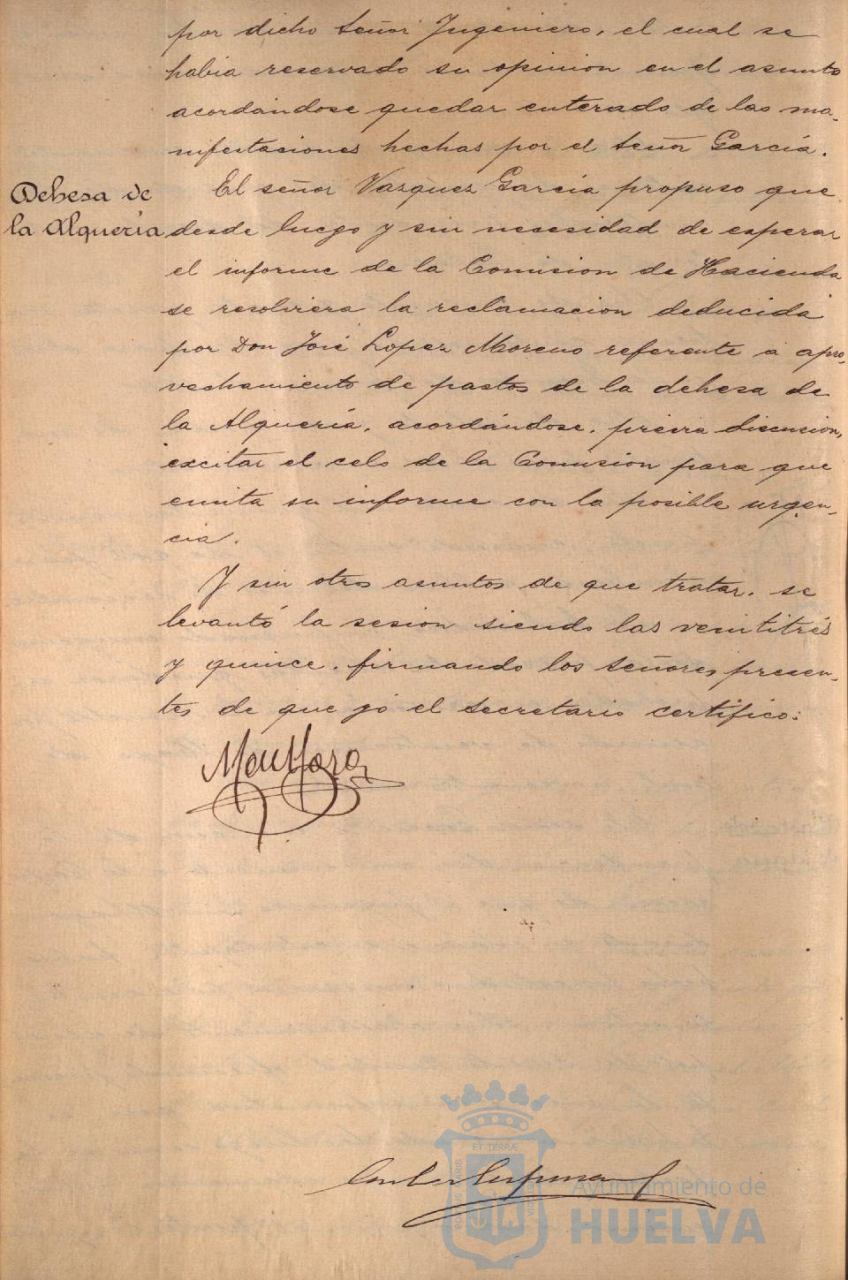 por dicho Señor Ingeniero, el cual se
habia reservado su opinion en el asunto
acordándose quedar enterado de las ma-
nifestaciones hechas por el Señor García.
Dehesa de
la Alquería
El señor Vazquez García propuso que
desde luego y sin necesidad de esperar
el informe de la Comision de Hacienda
se resolviera la reclamacion deducida
por Don José Lopez Moreno referente a apro-
vechamiento de pastos de la dehesa de
la Alquería, acordándose, previa discusion,
excitar el celo de la Comision para que
emita su informe con la posible urgen-
cia.
Y sin otros asuntos de que tratar, se
levantó la sesion siendo las veintitrés
y quince, firmando los señores presen-
tes de que yó el Secretario certifico:
Ayuntamiento de
HUELVA